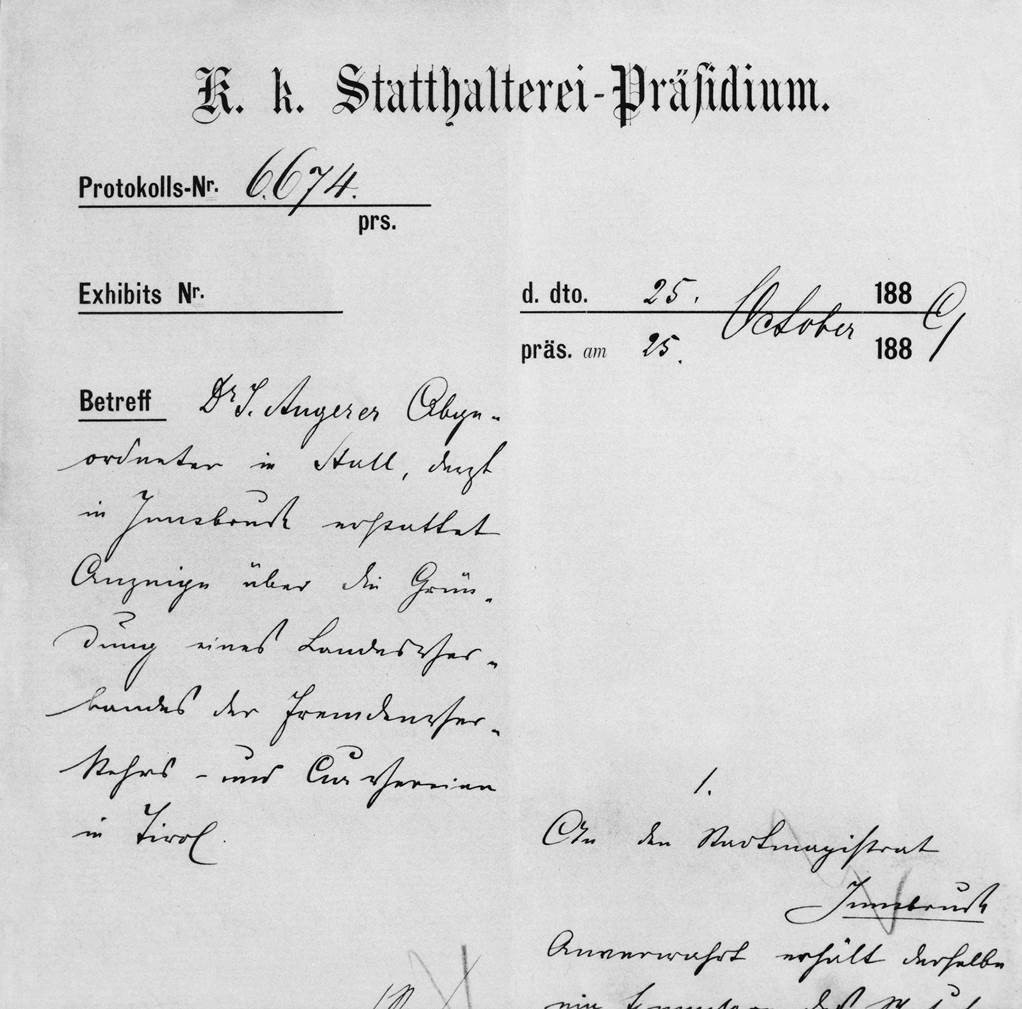 K. k. Statthalterei-Präsidium.
Protokolls-Nr. 6674.
prs.
Exhibits Nr.
d. dto. 25. October 1889
präs. am 25. 188
Betreff Dr J. Angerer Abge-
ordneter in Hall, derzt
in Innsbruck erstattet
Anzeige über die Grün-
dung eines Landesver-
bandes der Fremdenver-
kehrs- und Curvereine
in Tirol.
1.
An den Stadtmagistrat
Innsbruck
Anverwahrt erhält derselbe
ein Exemplar des